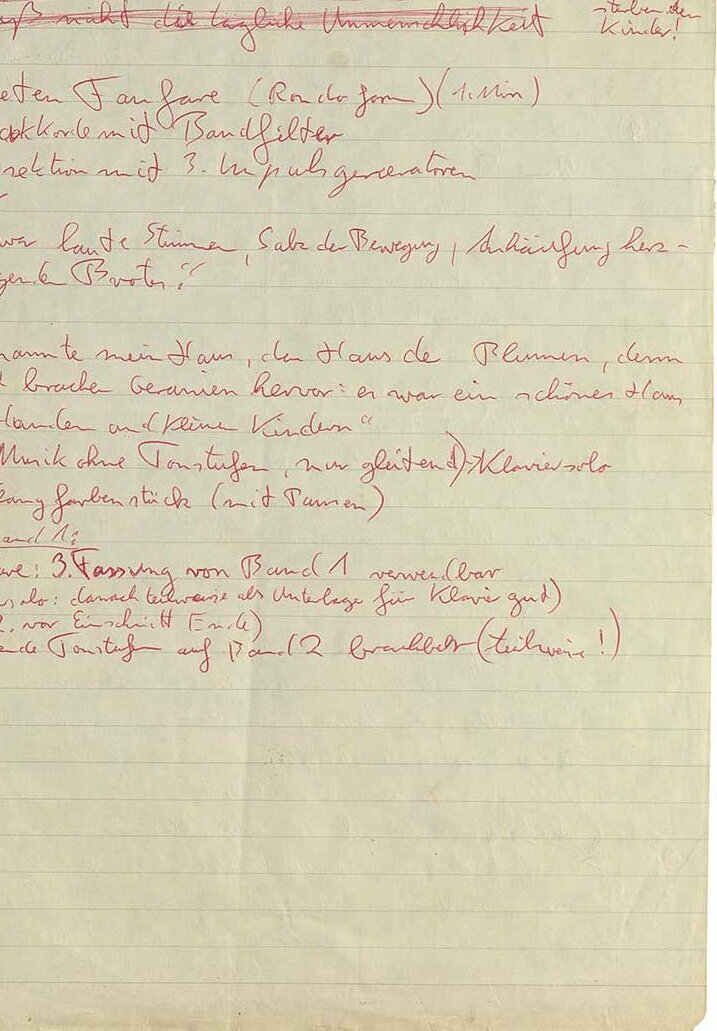 uß nicht die tägliche Unmenschlichkeit
-terbenden
Kinder!
eten Fanfare (Rondo form) (1. Min)
ckkorde mit Bandfilter
sektion mit 3. Impulsgeneratoren
war laute Stimmen, Salz der Bewegung, Anhäufung herz-
genden Brotes"
nannte mein Haus, den Haus de Blumen, denn
brachen Geranien hervor: es war ein schönes Haus
Hunden und kleinen Kindern"
Musik ohne Tonstufen, nur gleitend) Klaviersolo
lang farbenstück (mit Pausen)
and 1:
are: 3. Fassung von Band 1 verwendbar
solo: danach teilweise als Unterlage für Klavier gut)
2. vor Einschnitt Ende)
ende Tonstufen auf Band 2 brauchbar (teilweise!)